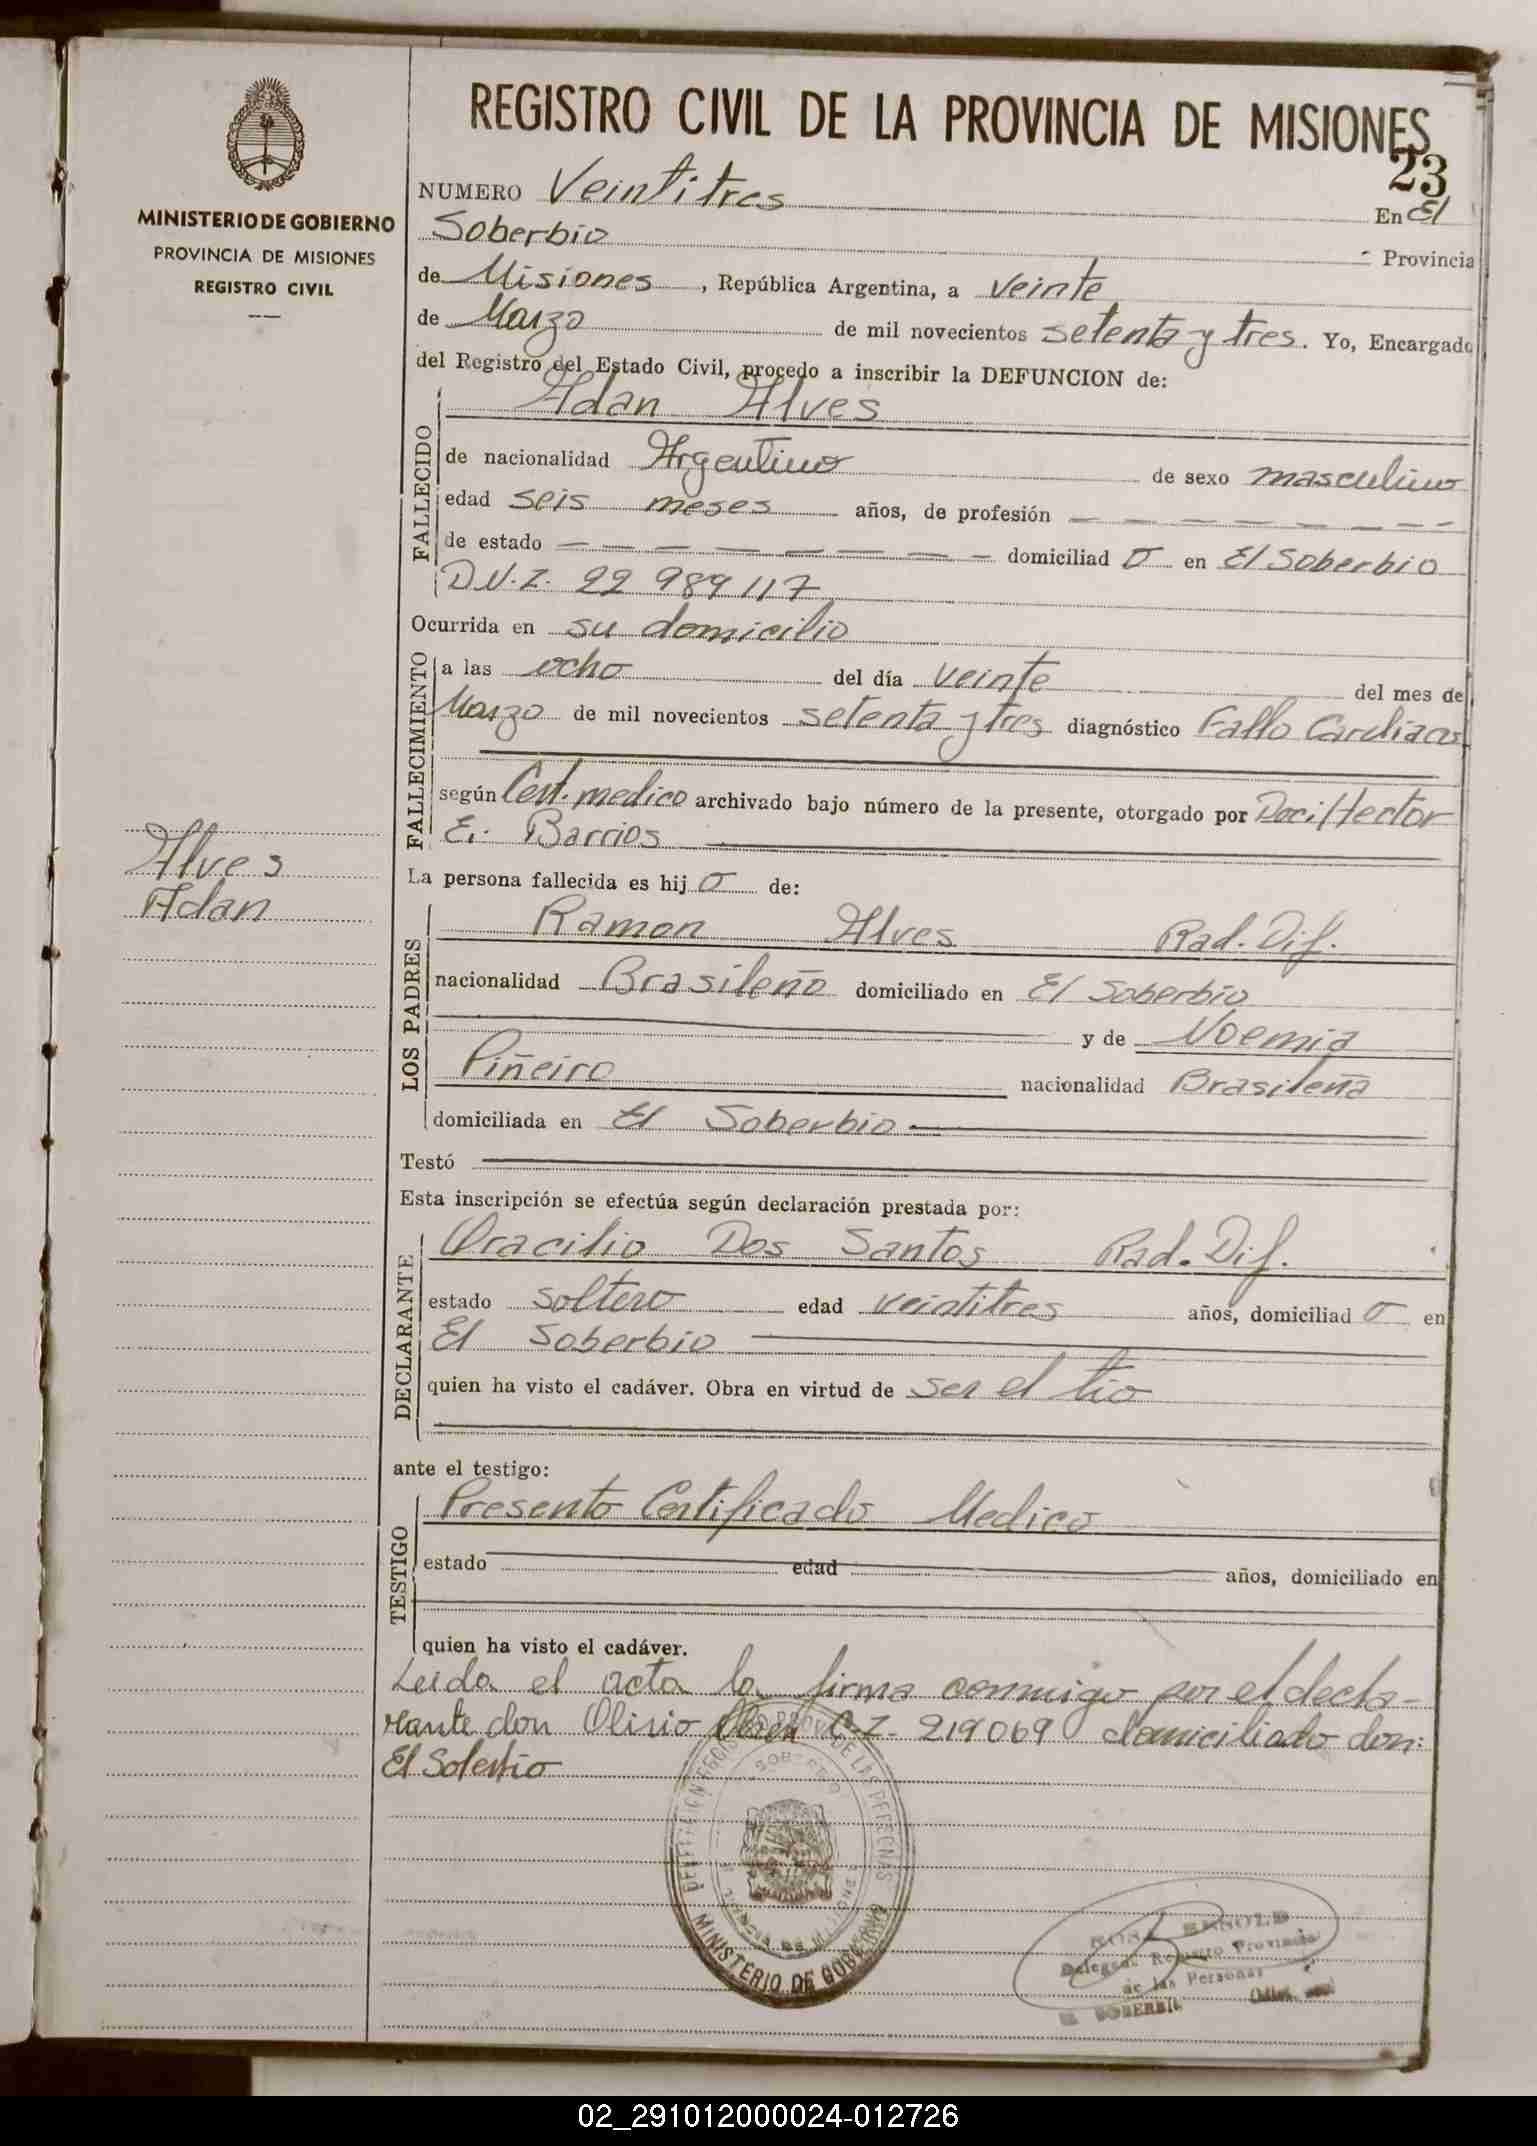 REGISTRO CIVIL DE LA PROVINCIA DE MISIONES
23
MINISTERIO DE GOBIERNO
PROVINCIA DE MISIONES
REGISTRO CIVIL
NUMERO Veintitres En El
Soberbio Provincia
de Misiones, República Argentina, a veinte
de Marzo de mil novecientos setenta y tres. Yo, Encargado
del Registro del Estado Civil, procedo a inscribir la DEFUNCION de:
Adan Alves
FALLECIDO
de nacionalidad Argentino de sexo masculino
edad seis meses años, de profesión — — — — — — —
de estado — — — — — — — — domiciliad o en El Soberbio
D.N.I. 22 989 117
Ocurrida en su domicilio
FALLECIMIENTO
a las ocho del día veinte del mes de
Marzo de mil novecientos setenta y tres diagnóstico Fallo Cardiaco
según Cert. medico archivado bajo número de la presente, otorgado por Hector
E. Barrios
Alves
Adan
La persona fallecida es hij o de:
LOS PADRES
Ramon Alves Rad. Dif.
nacionalidad Brasileño domiciliado en El Soberbio
y de Noemia
Piñeiro nacionalidad Brasileña
domiciliada en El Soberbio
Testó
Esta inscripción se efectúa según declaración prestada por:
DECLARANTE
Oracilio Dos Santos Rad. Dif.
estado soltero edad veintitres años, domiciliad o en
El Soberbio
quien ha visto el cadáver. Obra en virtud de ser el tio
ante el testigo:
TESTIGO
Presento Certificado Medico
estado edad años, domiciliado en
quien ha visto el cadáver.
Leida el acta la firma conmigo por el decla-
rante don Olirio C.I. 219069 domiciliado don:
El Soberbio
MINISTERIO DE GOBIERNO
Registro Provincial
de las Personas
SOBERBIO
02_291012000024-012726